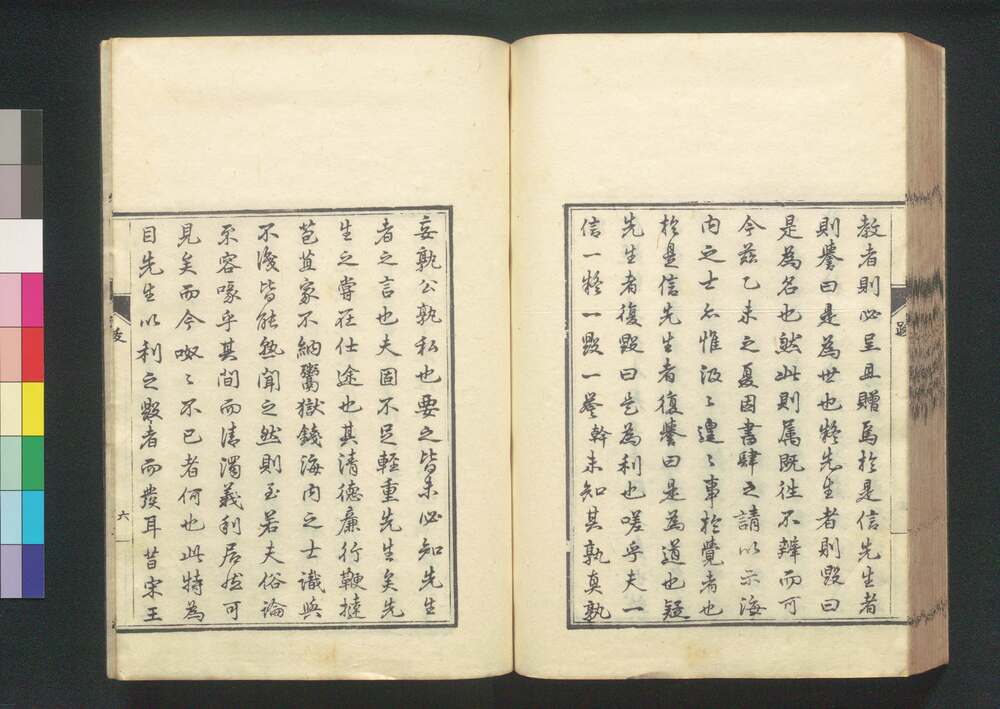 教者則必呈且贈焉於是信先生者
則譽曰是為世也疑先生者則毀曰
是為名也然此則属既徃不辨而可
今茲乙未之夏因書肆之請以示海
内之士亦惟汲〻遑〻事於覺者也
於是信先生者復譽曰是為道也疑
先生者復毀曰是為利也嗟乎夫一
信一疑一毀一譽幹未知其孰真孰
妄孰公孰私也要之皆未必知先生
者之言也夫固不足輕重先生矣先
生之嘗在仕途也其清德廉行鞭撻
苞苴家不納鬻獄錢海内之士識與
不淺皆能熟聞之然則至若夫俗論
不容喙乎其間而清濁義利居然可
見矣而今呶〻不已者何也此特為
目先生以利之毀者而發耳昔宋王
六